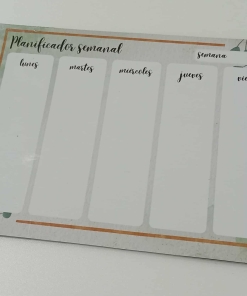 Planificador semanal
semana
lunes
martes
miercoles
jueves
vie